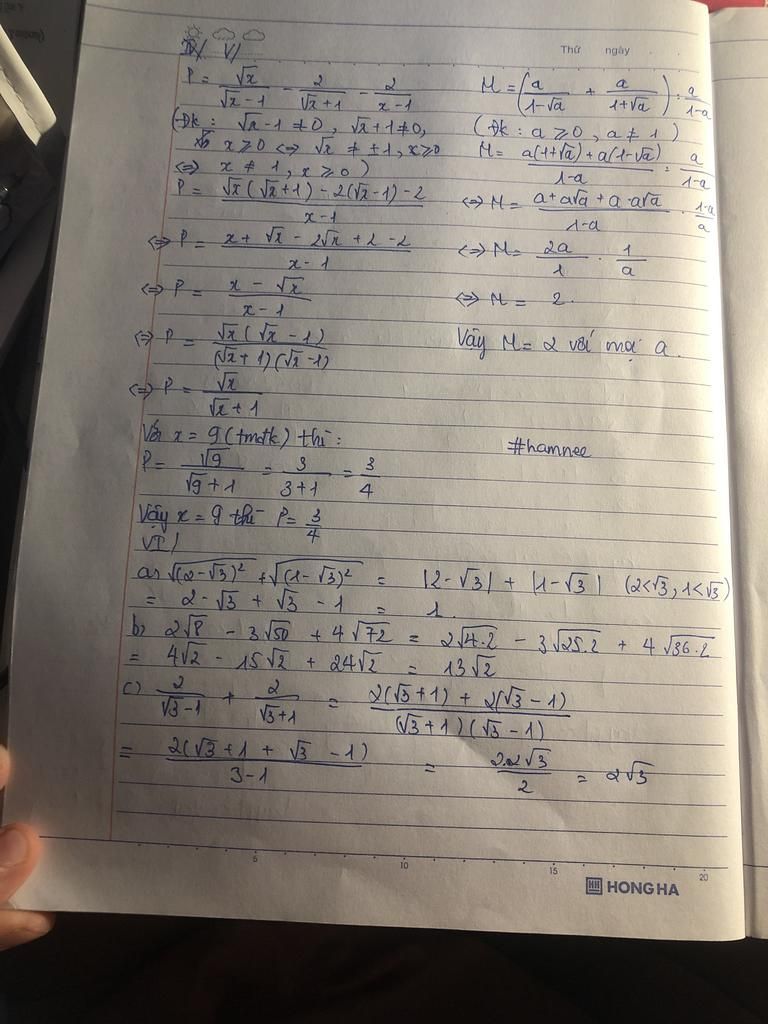 Thứ ngày
IV/ V/
P = √x/(√x-1) - 2/(√x+1) - 2/(x-1)
(Đk: √x-1 ≠ 0, √x+1 ≠ 0,
x ≥ 0 <=> √x ≠ ±1, x ≥ 0
<=> x ≠ 1, x ≥ 0)
P = (√x(√x+1) - 2(√x-1) - 2)/(x-1)
<=> P = (x + √x - 2√x + 2 - 2)/(x-1)
<=> P = (x - √x)/(x-1)
<=> P = (√x(√x-1))/((√x+1)(√x-1))
<=> P = √x/(√x+1)
Với x = 9 (tmđk) thì:
P = √9/(√9+1) = 3/(3+1) = 3/4
Vậy x = 9 thì P = 3/4
M = (a/(1-√a) + a/(1+√a)) : a/(1-a)
(Đk: a ≥ 0, a ≠ 1)
M = (a(1+√a)+a(1-√a))/(1-a) : a/(1-a)
<=> M = (a+a√a+a-a√a)/(1-a) . (1-a)/a
<=> M = 2a/1 . 1/a
<=> M = 2.
Vậy M = 2 với mọi a.
#hamnee
VI/
a) √(2-√3)² + √(1-√3)² = |2-√3| + |1-√3| (2<√3, 1<√3)
= 2-√3 + √3 - 1 = 1.
b) 2√8 - 3√50 + 4√72 = 2√4.2 - 3√25.2 + 4√36.2
= 4√2 - 15√2 + 24√2 = 13√2
c) 2/(√3-1) + 2/(√3+1) = (2(√3+1) + 2(√3-1))/((√3+1)(√3-1))
= 2(√3+1 + √3 -1)/(3-1) = 2.2√3/2 = 2√3
5 10 15 20
HONG HA